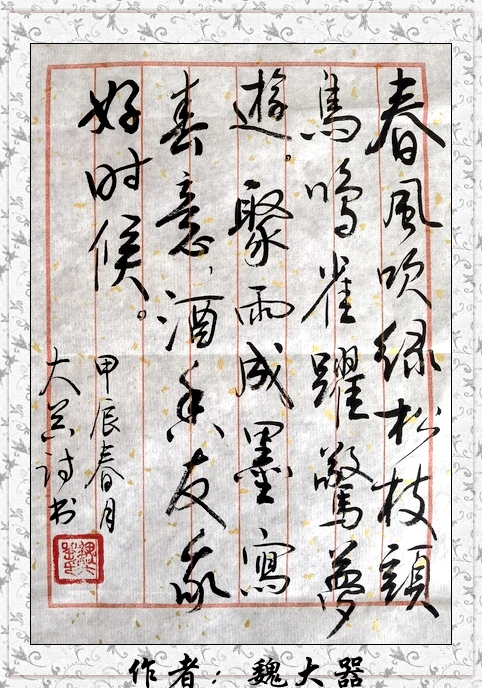 春風吹绿松枝頭
鳥鳴雀躍驚夢
遊。聚雨成墨寫
春意,酒香友
好时候。
甲辰春月
大器诗书
作者：魏大器